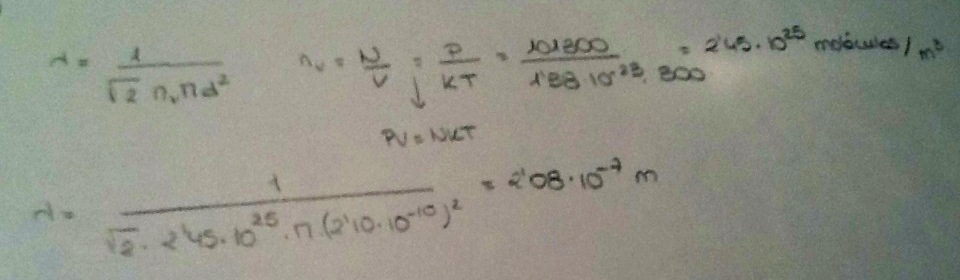 λ = 1 / (√2 n_v π d²)    n_v = N/V = P/KT = 101300 / (1'38·10⁻²³ · 300) = 2'45·10²⁵ moléculas/m³
↓
PV = NKT
λ = 1 / (√2 · 2'45·10²⁵ · π · (2'10·10⁻¹⁰)²) = 2'08·10⁻⁷ m